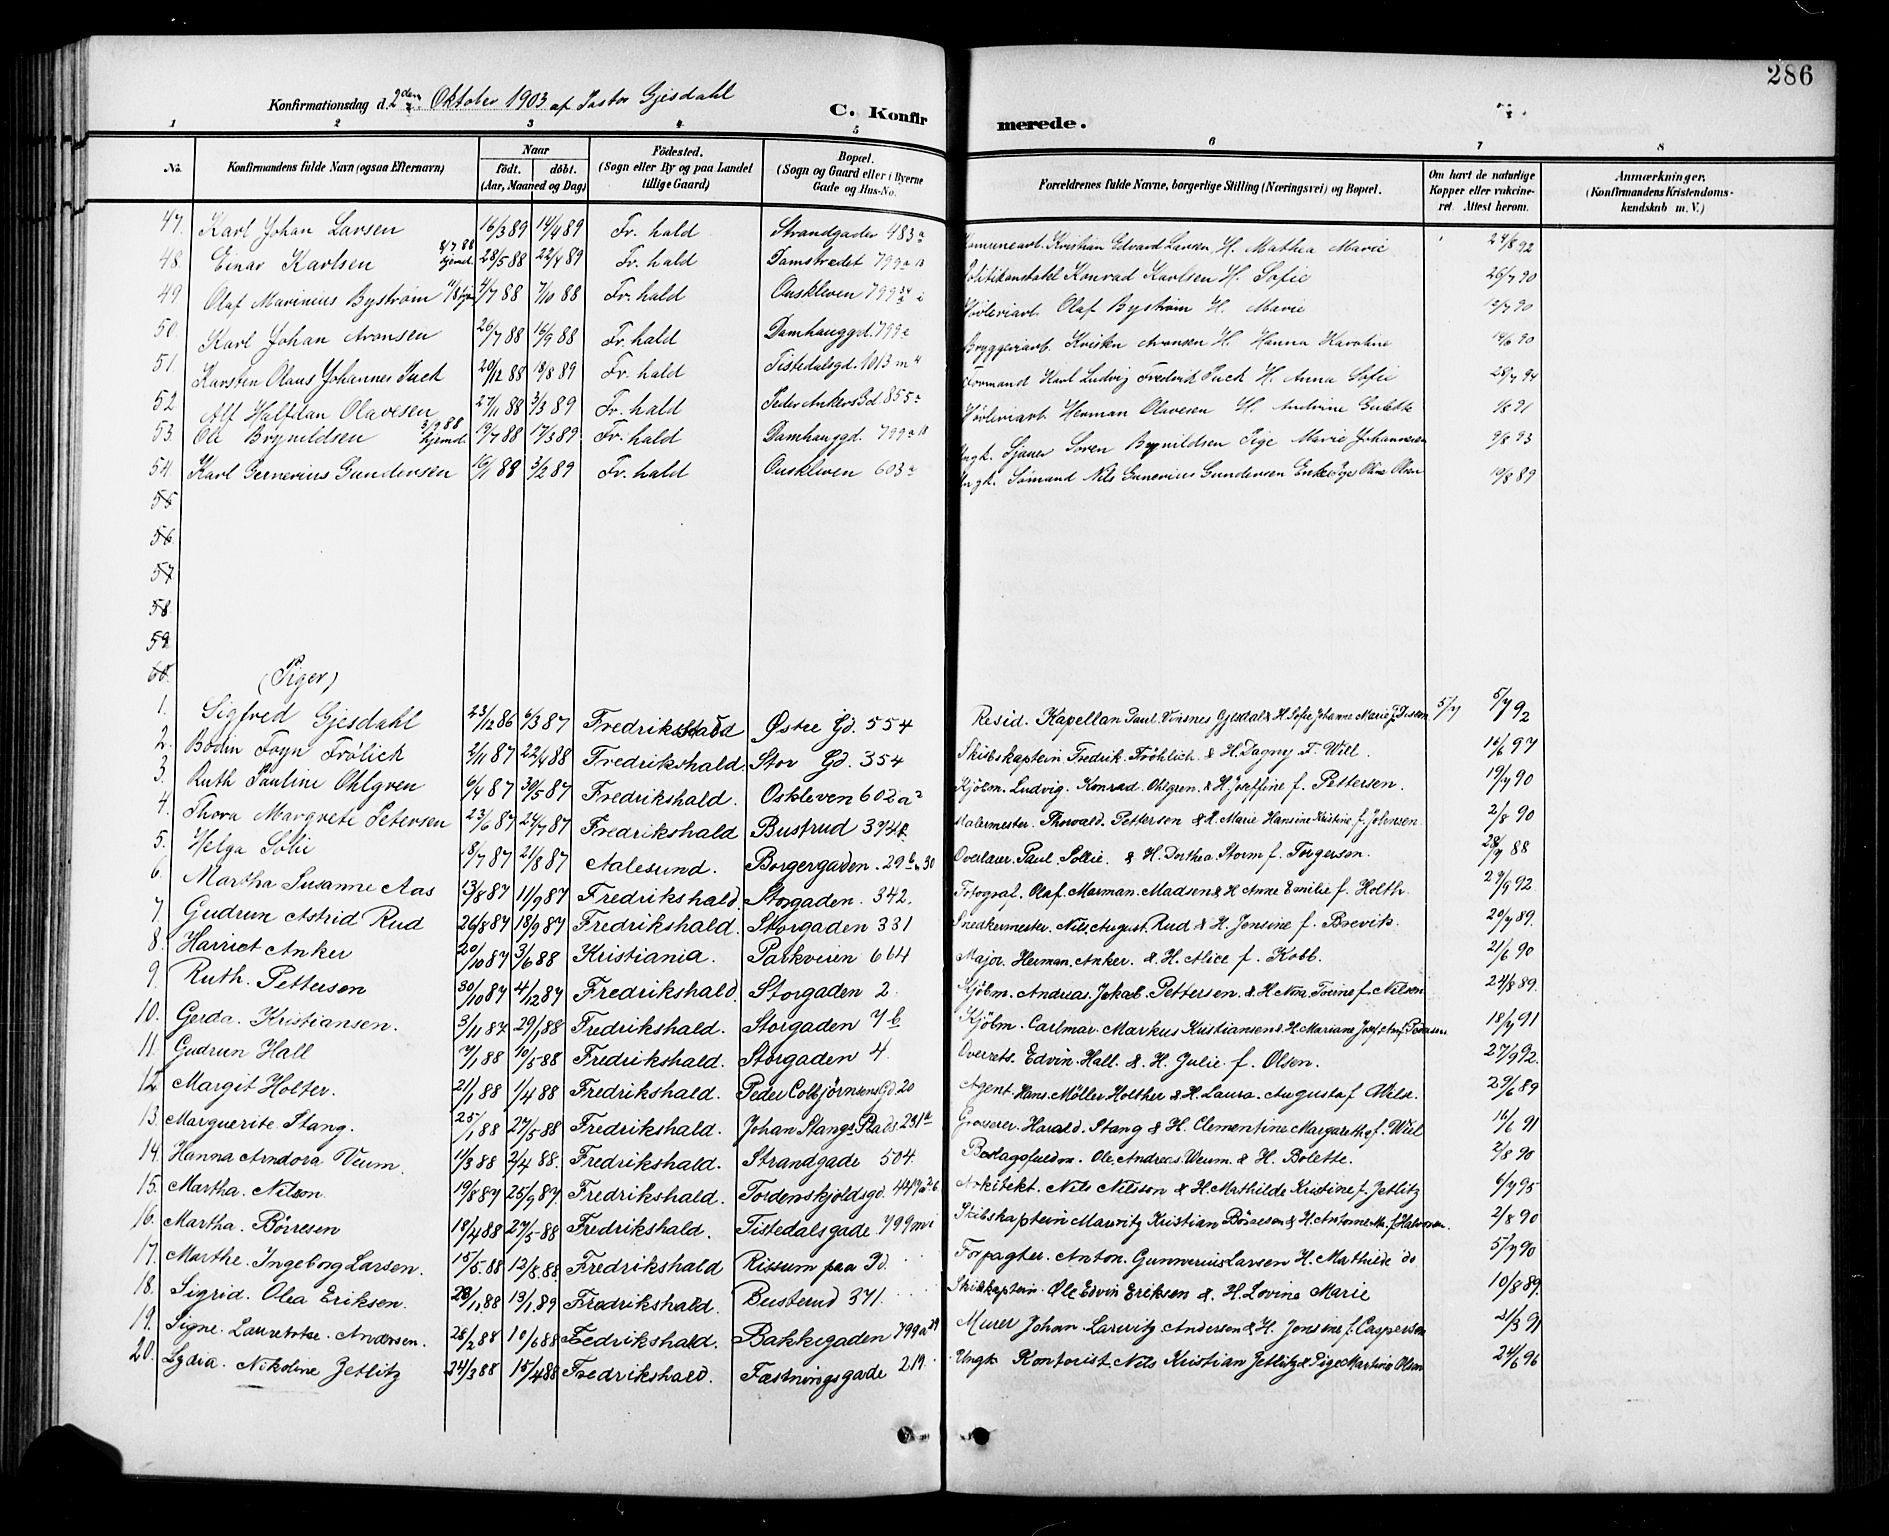 286
Konfirmationsdag d. 2den Oktober 1903 af Pastor Gjesdahl
C. Konfirmerede.
1 2 3 4 5 6 7 8
No. Konfirmandens fulde Navn (ogsaa Efternavn) Naar født. døbt. (Aar, Maaned og Dag) Födested. (Sogn eller By og paa Landet tillige Gaard) Bopæl. (Sogn og Gaard eller i Byerne Gade og Hus-No. Forældrenes fulde Navne, borgerlige Stilling (Næringsvei) og Bopæl. Om havt de naturlige Kopper eller vakcineret. Attest herom. Anmærkninger. (Konfirmandens Kristendomskundskab m. V.)
47. Karl Johan Larsen 16/3 89 14/4 89 Fr. hald Strandgaden 983a Komunearb. Kristian Edvard Larsen H. Mathea Marie 24/8 92
48. Einar Karlsen 8/7 88 hjemd. 28/5 88 22/4 89 Fr. hald Damstrædet 799a Politikonstabel Konrad Karlsen H. Sofie 26/7 90
49 Olaf Marinius Byström 4/7 88 7/10 88 Fr. hald Ouskleven 799 Høvleriarb. Olaf Byström H. Marie 12/7 90
50. Karl Johan Aronsen 26/7 88 16/9 88 Fr. hald Damhauggd. 799a Bryggeriarb. Kristen Aronsen H. Hanna Karoline 14/6 90
51. Karsten Olaus Johannes Puck 20/12 88 18/8 89 Fr. hald Tistedalsgd. 1013 m 4 Formand Karl Ludvig Fredrik Puck H. Anna Sofie 28/7 94
52 Alf Halfdan Olavesen 27/11 88 3/3 89 Fr. hald Peder Ankers Gd 855a Høvleriarb. Herman Olavesen H. Andrine Gulette 1/8 91
53. Ole Brynildsen 3/9 88 hjemd. 19/7 88 17/3 89 Fr. hald Damhauggd. 799a Ungk. Sjauer Søren Brynildsen Pige Marie Johannesen 9/8 93
54 Karl Gernerius Gundersen 10/1 88 3/2 89 Fr. hald Ouskleven 603a Ungk. Sømand Nils Gunerius Gundersen Enke Pige Oline Olsen 10/8 89
55
56
57
58
59
60.
(Piger)
1. Sigfred Gjesdahl 23/12 86 6/3 87 Fredrikshald Østre Gd. 554 Resid. Kapellan Paul Vinsnes Gjesdal & H. Sofie Johanne Marie f. 5/7 5/7 92
2. Bodin Foyn Frölich 2/11 87 22/4 88 Fredrikshald. Stor Gd. 354 Skibskaptein Fredrik Fröhlich & H. Dagny F. Will. 16/6 97
3. Ruth Pauline Ohlgren 6/4 87 30/5 87 Fredrikshald. Oskleven 602 a2 Kjöbm. Ludvig Konrad Ohlgren & H. Josefine f. Pettersen. 19/7 90
4. Thora Margrete Petersen 23/6 87 24/7 87 Fredrikshald Bustrud 394 Malermester Thorvald Pettersen & H. Marie Hansine Kristine f. Johnsen. 2/8 90
5. Helga Solie 18/7 87 21/8 87 Aalesund. Borgergaden 29b, 30 Overlærer Paul Sollie & H. Dorthea Storm f. Torgersen. 28/7 88
6. Martha Susanne Aas 13/8 87 11/9 87 Fredrikshald. Storgaden. 342. Fotograf. Olaf Marman Madsen & H Anne Emilie f. Holth. 29/9 92
7. Gudrun Astrid Rud 26/8 87 18/9 87 Fredrikshald. Storgaden 331 Snedkermester. Nils August Rud & H. Jensine f. Brevik. 20/7 89.
8. Harriet Anker 20/10 87 3/6 88 Kristiania. Parkveien 664 Major. Herman Anker. & H. Alice f. Kobb. 21/6 90
9. Ruth. Pettersen 30/10 87 4/12 87 Fredrikshald. Storgaden 2. Kjöbm. Andreas Jakob Pettersen. & H Nora Torine f. Nilsen 24/8 89.
10. Gerda. Kristiansen. 3/11 87 29/1 88 Fredrikshald. Storgaden 7b Kjöbm. Carlmar Markus Kristiansen & H. Mariane Josefine f. Petersen 18/7 91
11. Gudrun Hall 7/1 88 10/5 88 Fredrikshald. Storgaden 4. Overrets. Edvin Hall. & H. Julie f. Olsen. 27/9 92.
12 Margit Holter. 21/1 88 1/4 88 Fredrikshald. Peder Colbjörnsens Gd. 20 Agent. Hans Möller Holther & H. Laura Augusta f Wils. 29/6 89
13. Marguerite Stang. 25/1 88 27/5 88 Fredrikshald. Johan Stangs Plads 231a Grosserer. Harald Stang & H. Clementine Margarethe f. Wiel 16/6 91
14. Hanna Arndora Veum. 11/3 88 2/4 88. Fredrikshald. Strandgade 504. Beslagsfuldm. Ole Andreas Weum. & H. Bolette. 2/8 90
15. Martha. Nilson 19/8 87 25/9 87. Fredrikshald. Tordenskjoldsgd. 449a26 Arkitekt. Nils Nilsson & H. Mathilde Kristine f. Jetlitz 6/7 95
16. Martha. Börresen 18/4 88 27/5 88 Fredrikshald. Tistedalsgade 799mi Skibskaptein Mauritz Kristian Börresen & H. Antonne M. f. Halvorsen. 2/8 90
17. Marthe. Ingeborg Larsen. 15/5. 88 12/8. 88 Fredrikshald Rissum paa Id. Forpagter. Anton. Gunnerius Larsen H. Mathilde do 5/7 90
18. Sigrid. Olea Eriksen. 28/11 88 13/1 89 Fredrikshald. Busterud 371. Skibskaptein Ole Edvin Eriksen & H. Lovine Marie 10/8 89.
19. Signe. Lauretze. Andersen. 28/2 88 10/6 88 Fredrikshald. Bakkegaden 799a29 Murer Johan Lauritz Andersen & H. Jensine f. Caspersen 21/3 91
20. Lydia. Nikoline Jetlitz 24/3 88 15/4 88 Fredrikshald. Fæstningsgade 219. Ungk. Kontorist Nils Kristian Jetlitz & Pige Martine Olsen 24/6 96